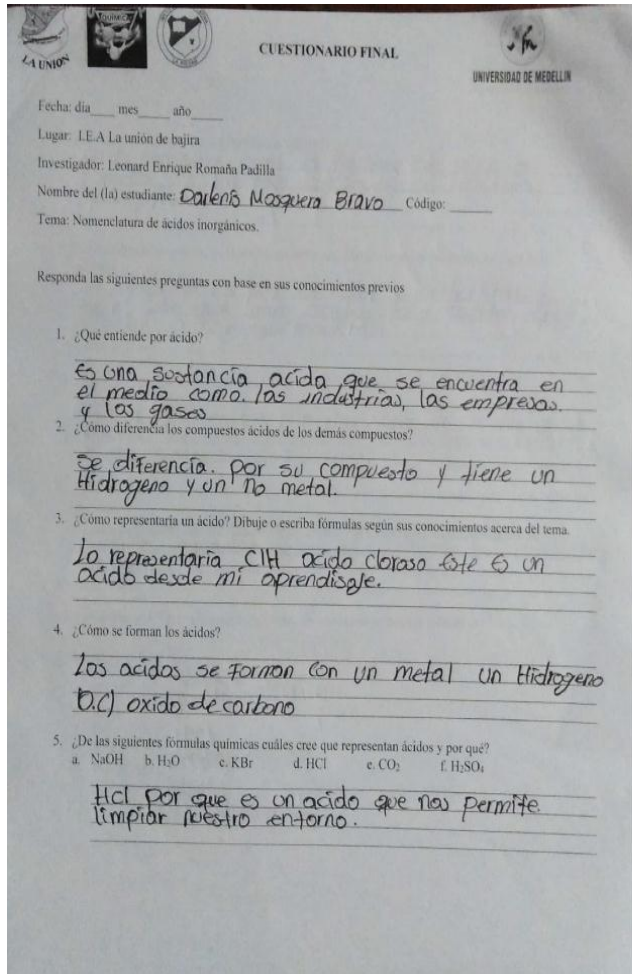 LA UNIÓN
QUÍMICA
CUESTIONARIO FINAL
UNIVERSIDAD DE MEDELLIN
Fecha: día____ mes_____ año_____
Lugar: I.E.A La unión de bajira
Investigador: Leonard Enrique Romaña Padilla
Nombre del (la) estudiante: Darlenis Mosquera Bravo Código: _______
Tema: Nomenclatura de ácidos inorgánicos.
Responda las siguientes preguntas con base en sus conocimientos previos
1. ¿Qué entiende por ácido?
Es una sustancia acida que se encuentra en
el medio como. las industrias, las empresas.
y los gases
2. ¿Cómo diferencia los compuestos ácidos de los demás compuestos?
se diferencia. por su compuesto y tiene un
Hidrogeno y un no metal.
3. ¿Cómo representaría un ácido? Dibuje o escriba fórmulas según sus conocimientos acerca del tema.
Lo representaría ClH acido cloroso Este es un
acido desde mi aprendisaje.
4. ¿Cómo se forman los ácidos?
Los acidos se forman con un metal un Hidrogeno
O.C) oxido de carbono
5. ¿De las siguientes fórmulas químicas cuáles cree que representan ácidos y por qué?
a. NaOH b. H₂O c. KBr d. HCl e. CO₂ f. H₂SO₄
Hcl por que es un acido que nos permite.
limpiar nuestro entorno.